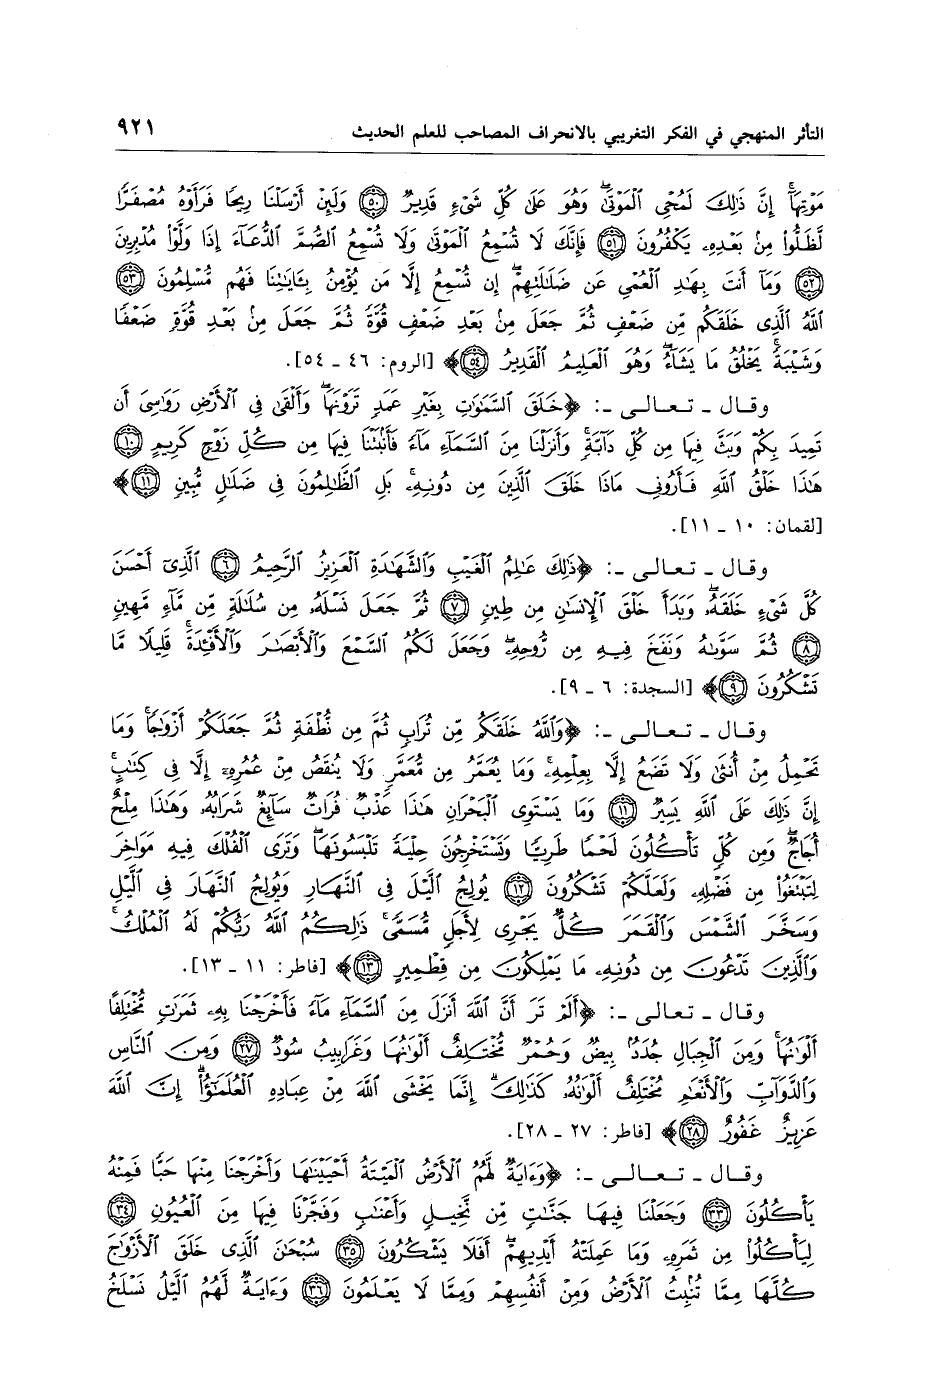 التأثر المنهجي في الفكر التغريبي بالانحراف المصاحب للعلم الحديث ٩٢١
مَوْتِهَآۚ إِنَّ ذَٰلِكَ لَمُحْيِ ٱلْمَوْتَىٰۖ وَهُوَ عَلَىٰ كُلِّ شَىْءٍ قَدِيرٌ ﴿٥٠﴾ وَلَئِنْ أَرْسَلْنَا رِيحًا فَرَأَوْهُ مُصْفَرًّا
لَّظَلُّوا۟ مِنۢ بَعْدِهِۦ يَكْفُرُونَ ﴿٥١﴾ فَإِنَّكَ لَا تُسْمِعُ ٱلْمَوْتَىٰ وَلَا تُسْمِعُ ٱلصُّمَّ ٱلدُّعَآءَ إِذَا وَلَّوْا۟ مُدْبِرِينَ
﴿٥٢﴾ وَمَآ أَنتَ بِهَٰدِ ٱلْعُمْىِ عَن ضَلَٰلَتِهِمْۖ إِن تُسْمِعُ إِلَّا مَن يُؤْمِنُ بِـَٔايَٰتِنَا فَهُم مُّسْلِمُونَ ﴿٥٣﴾
ٱللَّهُ ٱلَّذِى خَلَقَكُم مِّن ضَعْفٍ ثُمَّ جَعَلَ مِنۢ بَعْدِ ضَعْفٍ قُوَّةً ثُمَّ جَعَلَ مِنۢ بَعْدِ قُوَّةٍ ضَعْفًا
وَشَيْبَةًۚ يَخْلُقُ مَا يَشَآءُۖ وَهُوَ ٱلْعَلِيمُ ٱلْقَدِيرُ ﴿٥٤﴾﴾ [الروم: ٤٦ ـ ٥٤].
وقـال ـ تـعـالـى ـ: ﴿خَلَقَ ٱلسَّمَٰوَٰتِ بِغَيْرِ عَمَدٍ تَرَوْنَهَاۖ وَأَلْقَىٰ فِى ٱلْأَرْضِ رَوَٰسِىَ أَن
تَمِيدَ بِكُمْ وَبَثَّ فِيهَا مِن كُلِّ دَآبَّةٍۚ وَأَنزَلْنَا مِنَ ٱلسَّمَآءِ مَآءً فَأَنۢبَتْنَا فِيهَا مِن كُلِّ زَوْجٍ كَرِيمٍ ﴿١٠﴾
هَٰذَا خَلْقُ ٱللَّهِ فَأَرُونِى مَاذَا خَلَقَ ٱلَّذِينَ مِن دُونِهِۦۚ بَلِ ٱلظَّٰلِمُونَ فِى ضَلَٰلٍ مُّبِينٍ ﴿١١﴾﴾
[لقمان: ١٠ ـ ١١].
وقـال ـ تـعـالـى ـ: ﴿ذَٰلِكَ عَٰلِمُ ٱلْغَيْبِ وَٱلشَّهَٰدَةِ ٱلْعَزِيزُ ٱلرَّحِيمُ ﴿٦﴾ ٱلَّذِىٓ أَحْسَنَ
كُلَّ شَىْءٍ خَلَقَهُۥۖ وَبَدَأَ خَلْقَ ٱلْإِنسَٰنِ مِن طِينٍ ﴿٧﴾ ثُمَّ جَعَلَ نَسْلَهُۥ مِن سُلَٰلَةٍ مِّن مَّآءٍ مَّهِينٍ
﴿٨﴾ ثُمَّ سَوَّىٰهُ وَنَفَخَ فِيهِ مِن رُّوحِهِۦۖ وَجَعَلَ لَكُمُ ٱلسَّمْعَ وَٱلْأَبْصَٰرَ وَٱلْأَفْـِٔدَةَۚ قَلِيلًا مَّا
تَشْكُرُونَ ﴿٩﴾﴾ [السجدة: ٦ ـ ٩].
وقـال ـ تـعـالـى ـ: ﴿وَٱللَّهُ خَلَقَكُم مِّن تُرَابٍ ثُمَّ مِن نُّطْفَةٍ ثُمَّ جَعَلَكُمْ أَزْوَٰجًاۚ وَمَا
تَحْمِلُ مِنْ أُنثَىٰ وَلَا تَضَعُ إِلَّا بِعِلْمِهِۦۚ وَمَا يُعَمَّرُ مِن مُّعَمَّرٍ وَلَا يُنقَصُ مِنْ عُمُرِهِۦٓ إِلَّا فِى كِتَٰبٍۚ
إِنَّ ذَٰلِكَ عَلَى ٱللَّهِ يَسِيرٌ ﴿١١﴾ وَمَا يَسْتَوِى ٱلْبَحْرَانِ هَٰذَا عَذْبٌ فُرَاتٌ سَآئِغٌ شَرَابُهُۥ وَهَٰذَا مِلْحٌ
أُجَاجٌۖ وَمِن كُلٍّ تَأْكُلُونَ لَحْمًا طَرِيًّا وَتَسْتَخْرِجُونَ حِلْيَةً تَلْبَسُونَهَاۖ وَتَرَى ٱلْفُلْكَ فِيهِ مَوَاخِرَ
لِتَبْتَغُوا۟ مِن فَضْلِهِۦ وَلَعَلَّكُمْ تَشْكُرُونَ ﴿١٢﴾ يُولِجُ ٱلَّيْلَ فِى ٱلنَّهَارِ وَيُولِجُ ٱلنَّهَارَ فِى ٱلَّيْلِ
وَسَخَّرَ ٱلشَّمْسَ وَٱلْقَمَرَ كُلٌّ يَجْرِى لِأَجَلٍ مُّسَمًّىۚ ذَٰلِكُمُ ٱللَّهُ رَبُّكُمْ لَهُ ٱلْمُلْكُۚ
وَٱلَّذِينَ تَدْعُونَ مِن دُونِهِۦ مَا يَمْلِكُونَ مِن قِطْمِيرٍ ﴿١٣﴾﴾ [فاطر: ١١ ـ ١٣].
وقـال ـ تـعـالى ـ: ﴿أَلَمْ تَرَ أَنَّ ٱللَّهَ أَنزَلَ مِنَ ٱلسَّمَآءِ مَآءً فَأَخْرَجْنَا بِهِۦ ثَمَرَٰتٍ مُّخْتَلِفًا
أَلْوَٰنُهَاۚ وَمِنَ ٱلْجِبَالِ جُدَدٌۢ بِيضٌ وَحُمْرٌ مُّخْتَلِفٌ أَلْوَٰنُهَا وَغَرَابِيبُ سُودٌ ﴿٢٧﴾ وَمِنَ ٱلنَّاسِ
وَٱلدَّوَآبِّ وَٱلْأَنْعَٰمِ مُخْتَلِفٌ أَلْوَٰنُهُۥ كَذَٰلِكَۗ إِنَّمَا يَخْشَى ٱللَّهَ مِنْ عِبَادِهِ ٱلْعُلَمَٰٓؤُا۟ۗ إِنَّ ٱللَّهَ
عَزِيزٌ غَفُورٌ ﴿٢٨﴾﴾ [فاطر: ٢٧ ـ ٢٨].
وقـال ـ تـعـالـى ـ: ﴿وَءَايَةٌ لَّهُمُ ٱلْأَرْضُ ٱلْمَيْتَةُ أَحْيَيْنَٰهَا وَأَخْرَجْنَا مِنْهَا حَبًّا فَمِنْهُ
يَأْكُلُونَ ﴿٣٣﴾ وَجَعَلْنَا فِيهَا جَنَّٰتٍ مِّن نَّخِيلٍ وَأَعْنَٰبٍ وَفَجَّرْنَا فِيهَا مِنَ ٱلْعُيُونِ ﴿٣٤﴾
لِيَأْكُلُوا۟ مِن ثَمَرِهِۦ وَمَا عَمِلَتْهُ أَيْدِيهِمْۖ أَفَلَا يَشْكُرُونَ ﴿٣٥﴾ سُبْحَٰنَ ٱلَّذِى خَلَقَ ٱلْأَزْوَٰجَ
كُلَّهَا مِمَّا تُنۢبِتُ ٱلْأَرْضُ وَمِنْ أَنفُسِهِمْ وَمِمَّا لَا يَعْلَمُونَ ﴿٣٦﴾ وَءَايَةٌ لَّهُمُ ٱلَّيْلُ نَسْلَخُ